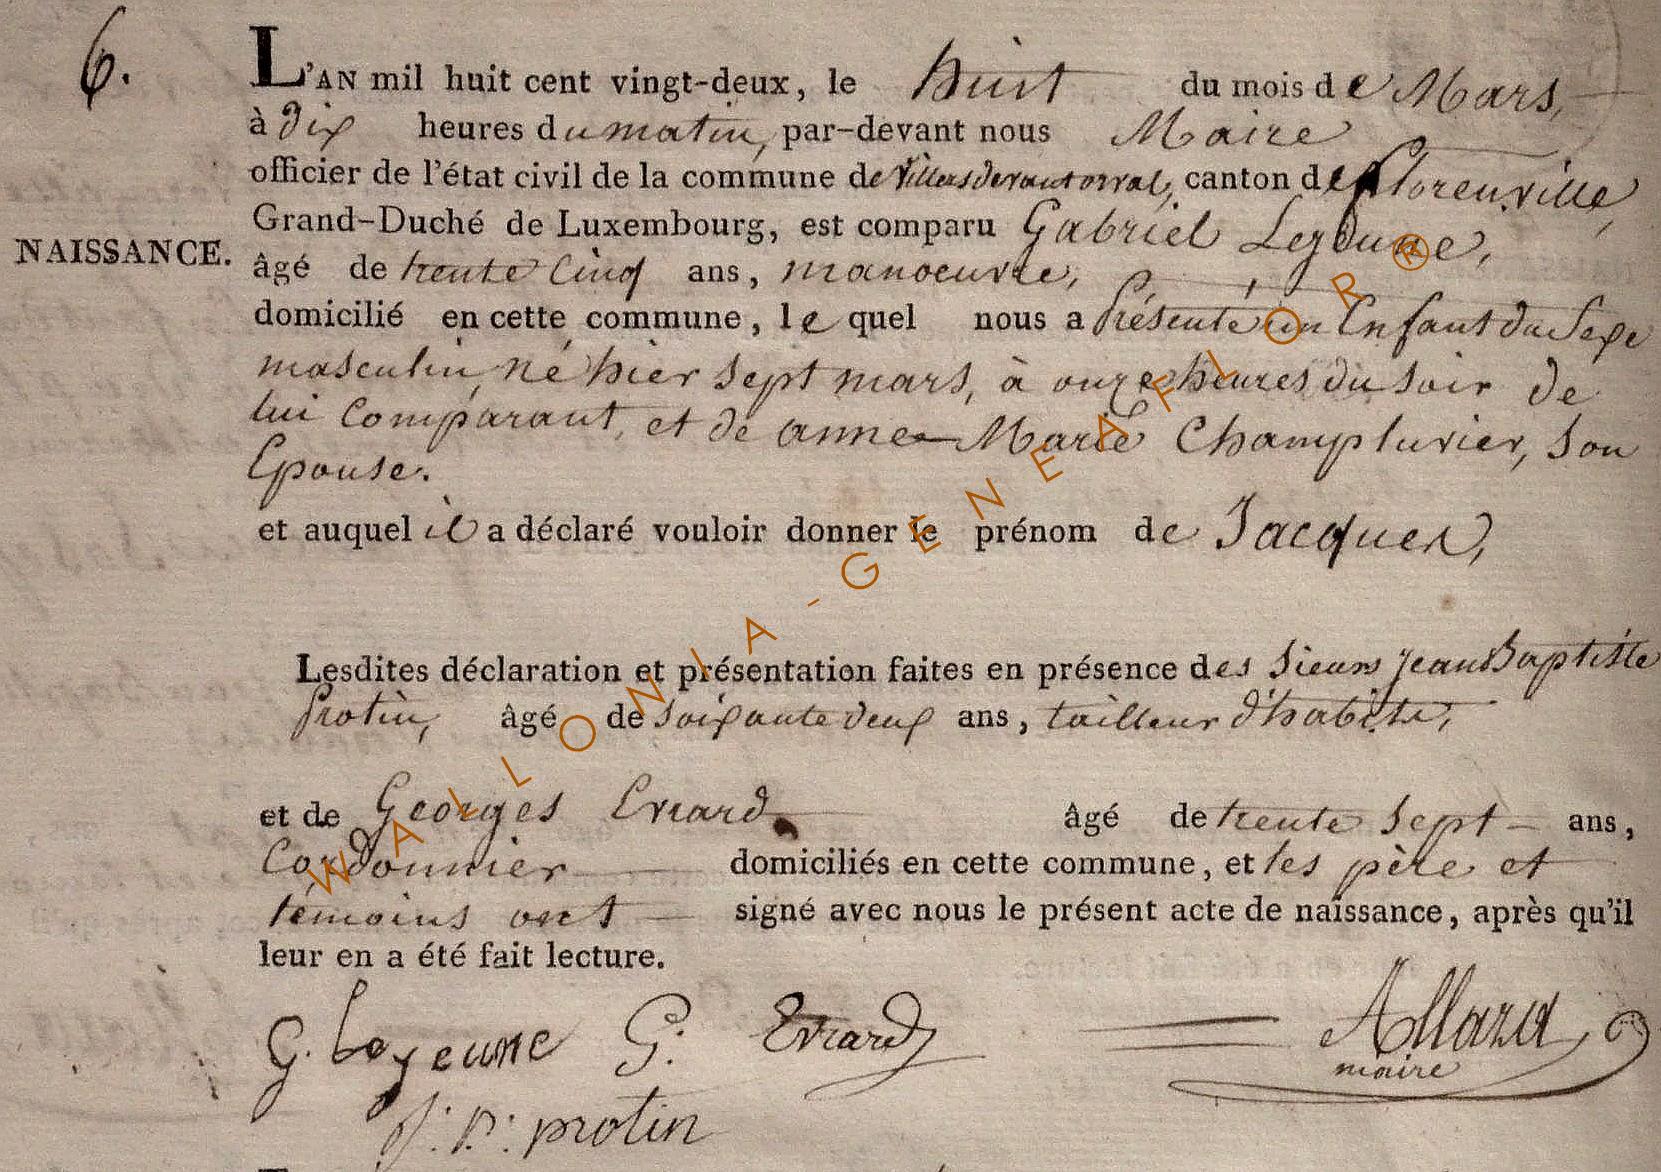 6.
L'AN mil huit cent vingt-deux, le huit du mois de Mars,
à dix heures du matin, par-devant nous Maire
officier de l'état civil de la commune de villersdevantorval, canton de florenville,
Grand-Duché de Luxembourg, est comparu Gabriel Lejeune,
NAISSANCE.
âgé de trente cinq ans, manoeuvre,
domicilié en cette commune, le quel nous a présenté un Enfant du Sexe
masculin, né hier sept mars, à onze heures du soir de
lui comparant, et de anne Marie Champluvier, son
Epouse.
et auquel il a déclaré vouloir donner le prénom de Jacques,
Lesdites déclaration et présentation faites en présence des sieurs jean Baptiste
protin, âgé de soixante deux ans, tailleur d'habits,
et de Georges Evrard âgé de trente sept ans,
Cordonnier domiciliés en cette commune, et les père et
témoins ont signé avec nous le présent acte de naissance, après qu'il
leur en a été fait lecture.
G. Lejeune G. Evrard Allard
maire
j. B. protin
WALLONIA-GENEAFLOR®